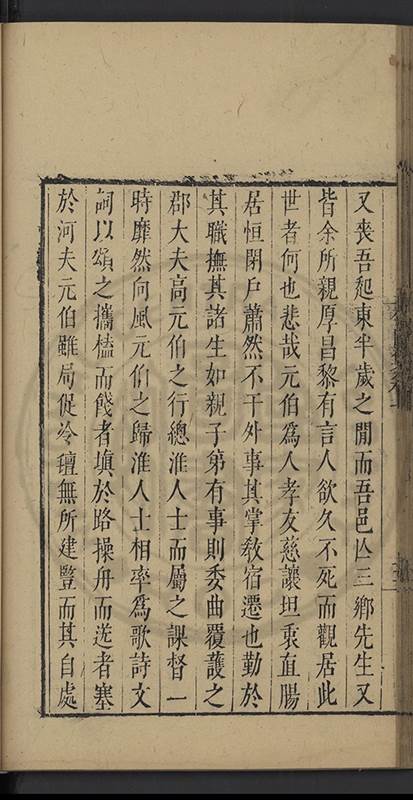 又喪吾起東半歲之間而吾邑亾三鄉先生又
皆余所親厚昌黎有言人欲久不死而觀居此
世者何也悲哉元伯爲人孝友慈讓坦衷直腸
居恒閉戶蕭然不干外事其掌敎宿遷也勤於
其職撫其諸生如親子弟有事則委曲覆護之
郡大夫高元伯之行總淮人士而屬之課督一
時靡然向風元伯之歸淮人士相率爲歌詩文
詞以頌之攜榼而餞者塡於路操舟而送者塞
於河夫元伯雖局促冷氊無所建豎而其自處